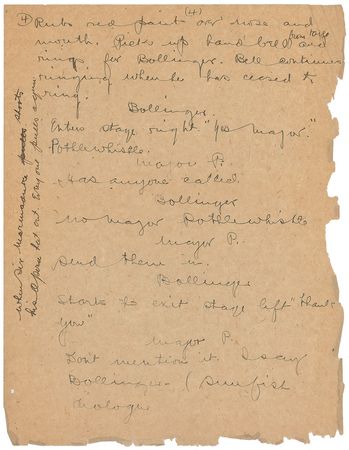 (4)
4) Rubs red paint over nose and
mouth. Picks up hand bell and
from table
rings for Bollinger. Bell continues
ringing when he has ceased to
ring.
Bollinger.
Enters stage right "Yes Major."
Pottlewhistle.
Major P.
Has anyone called
Bollinger
No Major Pottlewhistle
Major P.
Send them in.
Bollinger
Starts to exit stage left "Thank
you"
Major P.
Don't mention it. I say
Bollinger - (Sunfish
dialogue
When Sir Marmaduke shoots
his opera hat out. Everyone